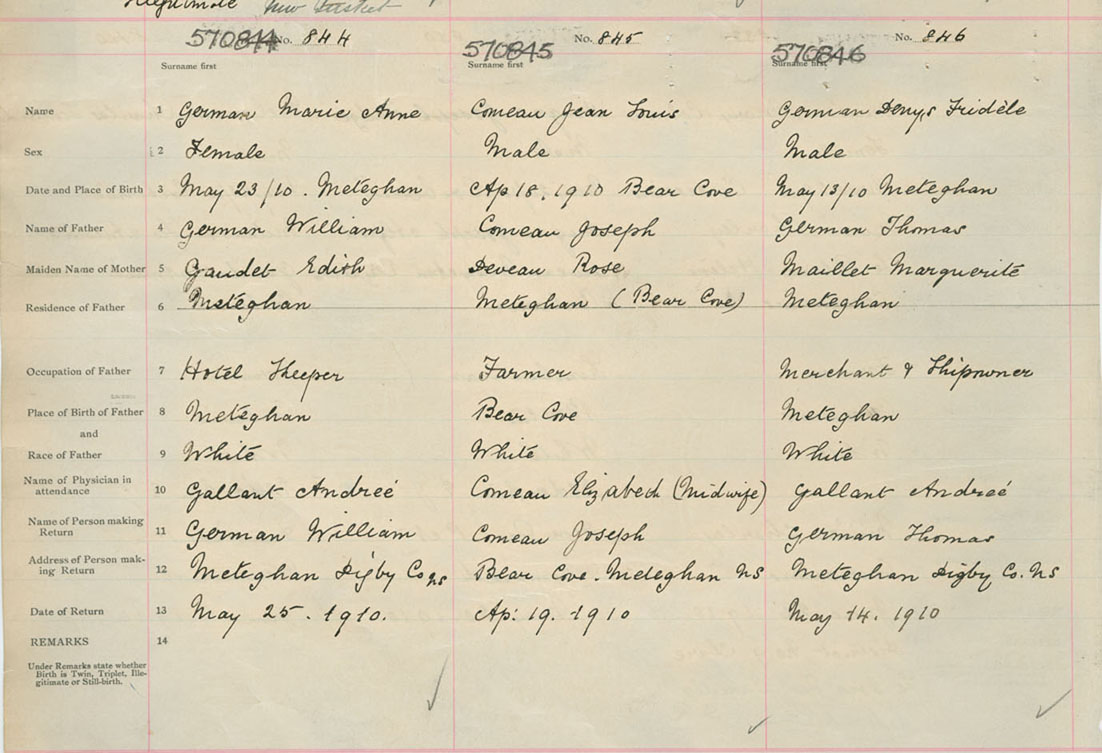 Illegitimate New Tusket
570844 No. 844 570845 No. 845 570846 No. 846
Surname first Surname first Surname first
Name 1 German Marie Anne Comeau Jean Louis German Denys Fridèle
Sex 2 Female Male Male
Date and Place of Birth 3 May 23/10. Meteghan Ap 18, 1910 Bear Cove May 13/10 Meteghan
Name of Father 4 German William Comeau Joseph German Thomas
Maiden Name of Mother 5 Gaudet Edith Deveau Rose Maillet Marguerite
Residence of Father 6 Meteghan Meteghan (Bear Cove) Meteghan
Occupation of Father 7 Hotel Keeper Farmer Merchant & Shipowner
Place of Birth of Father 8 Meteghan Bear Cove Meteghan
and
Race of Father 9 White White White
Name of Physician in
attendance 10 Gallant Andreé Comeau Elizabeth (Midwife) Gallant Andreé
Name of Person making
Return 11 German William Comeau Joseph German Thomas
Address of Person mak-
ing Return 12 Meteghan Digby Co NS Bear Cove. Meteghan NS Meteghan Digby Co. NS
Date of Return 13 May 25. 1910. Ap: 19. 1910 May 14. 1910
REMARKS 14
Under Remarks state whether
Birth is Twin, Triplet, Ille-
gitimate or Still-birth.